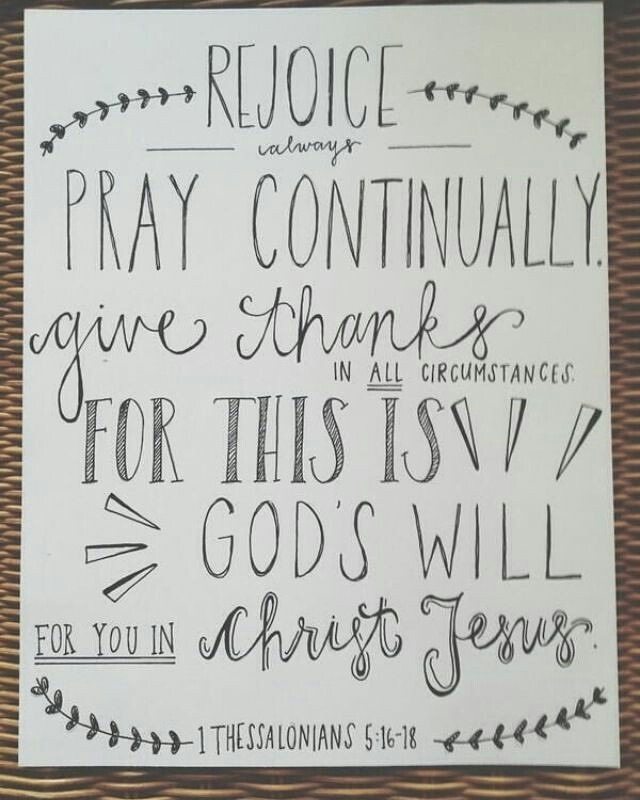 REJOICE
always
PRAY CONTINUALLY.
give thanks
IN ALL CIRCUMSTANCES.
FOR THIS IS
GOD'S WILL
FOR YOU IN Christ Jesus.
1 THESSALONIANS 5:16-18